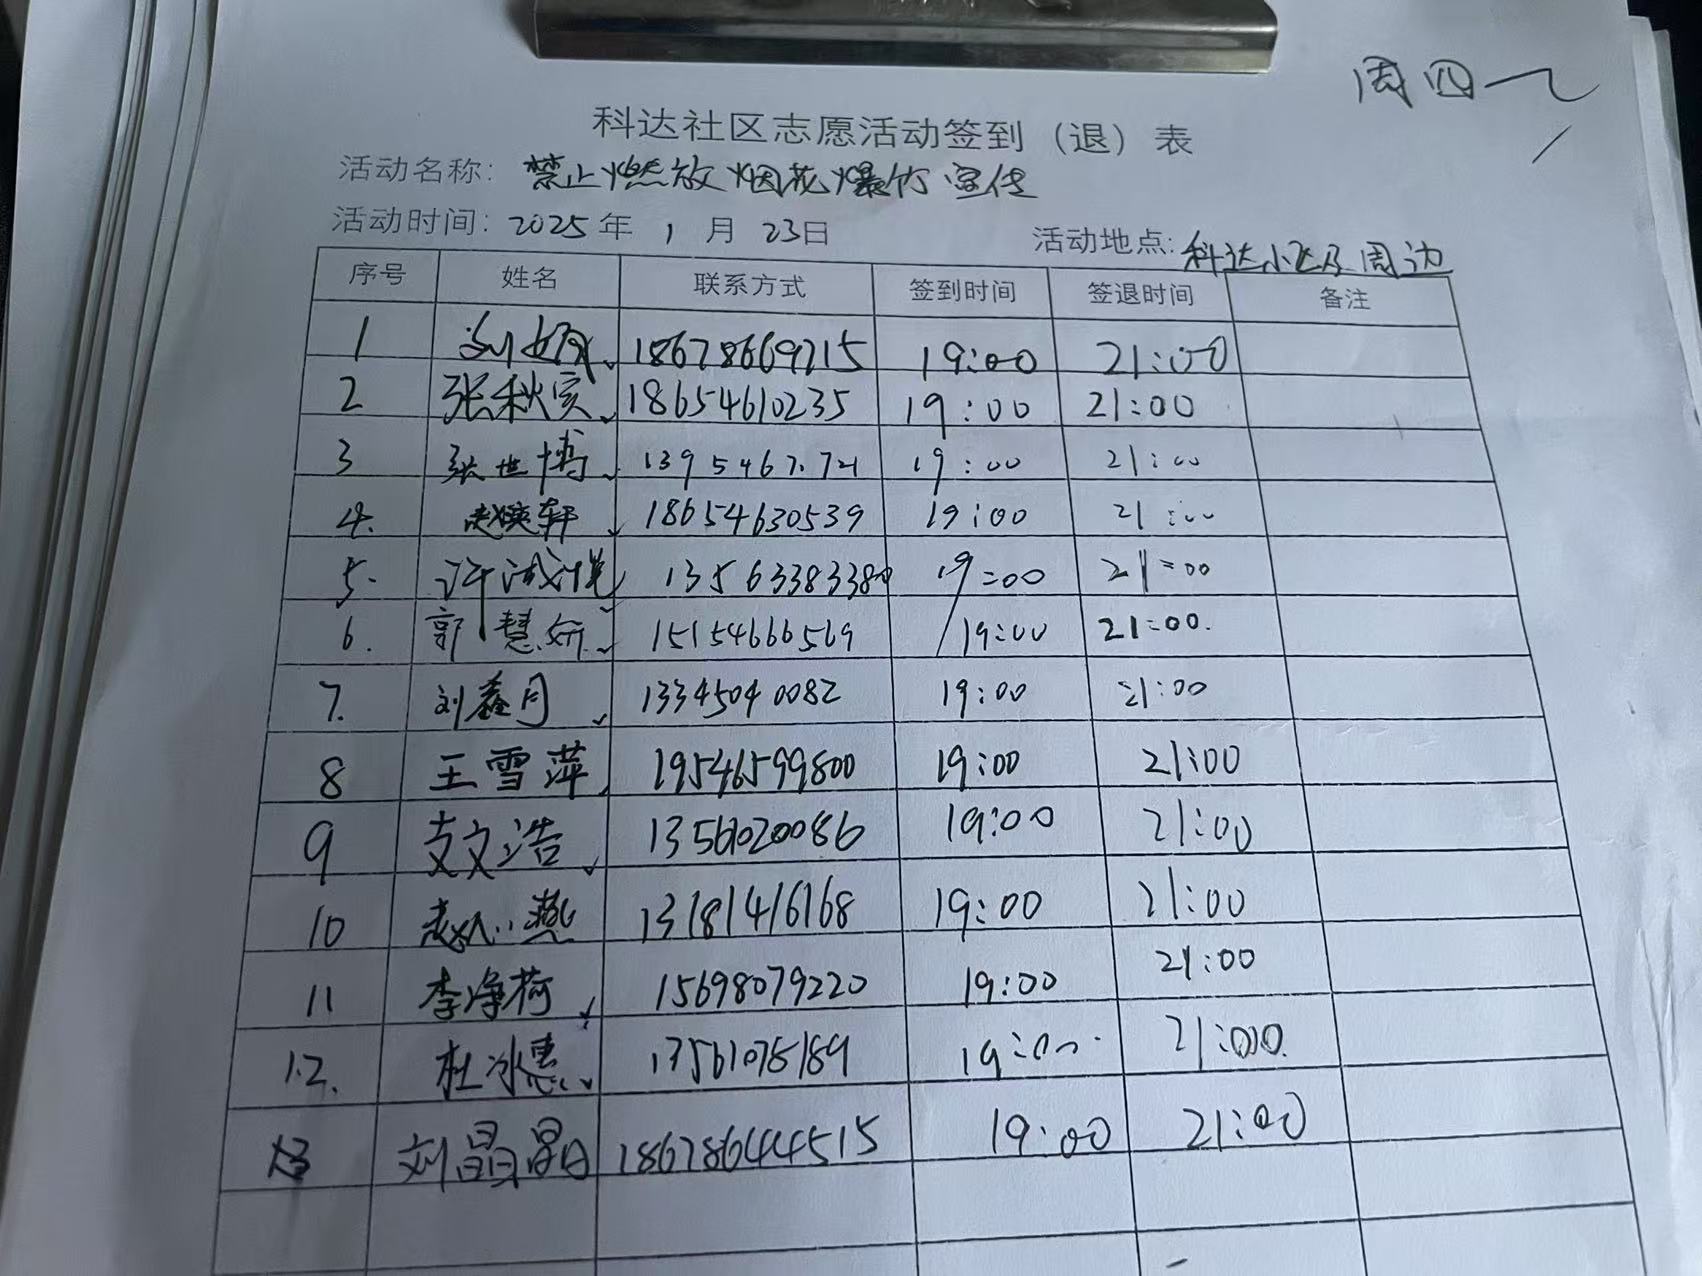 周四
科达社区志愿活动签到（退）表
活动名称: 禁止燃放烟花爆竹宣传
活动时间: 2025 年 1 月 23日 活动地点: 科达小区及周边
序号 姓名 联系方式 签到时间 签退时间 备注
1 刘 18678669715 19:00 21:00
2 张秋实 18654610235 19:00 21:00
3 张世博 19:00 21:00
4. 赵 轩 18654630539 19:00 21:00
5. 许 13563383380 19:00 21:00
6. 郭慧妍 15154666569 19:00 21:00.
7. 刘鑫月 13345040082 19:00 21:00
8 王雪萍 19546599800 19:00 21:00
9 支文浩 13561020086 19:00 21:00
10 燕 13181416168 19:00 21:00
11 李净荷 15698079220 19:00 21:00
12. 杜冰惠 13561078189 19:00 21:00
13 刘晶晶 18678644515 19:00 21:00